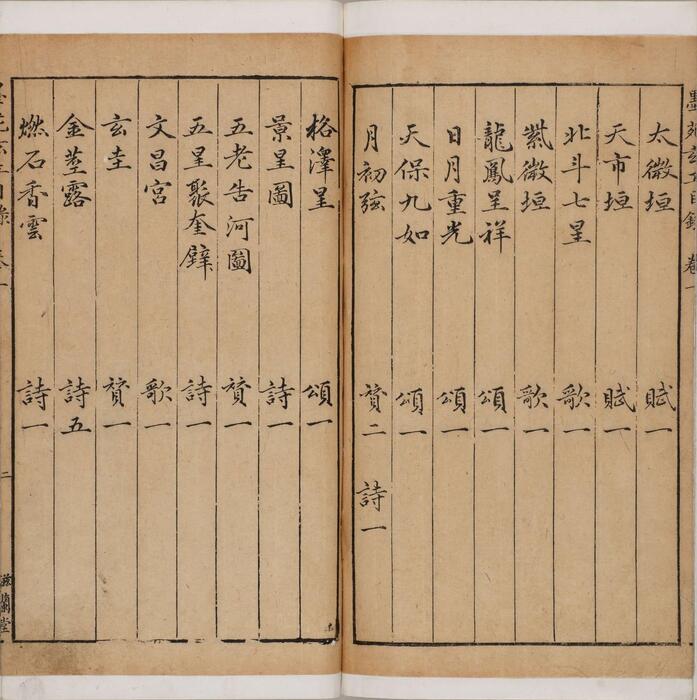 太微垣 賦一
天市垣 賦一
北斗七星 歌一
紫微垣 歌一
龍鳳呈祥 頌一
日月重光 頌一
天保九如 頌一
月初弦 贊二 詩一
格澤星 頌一
景星圖 詩一
五老告河圖 贊一
五星聚奎壁 詩一
文昌宮 歌一
玄圭 贊一
金莖露 詩五
燃石香雲 詩一
二
滋蘭堂